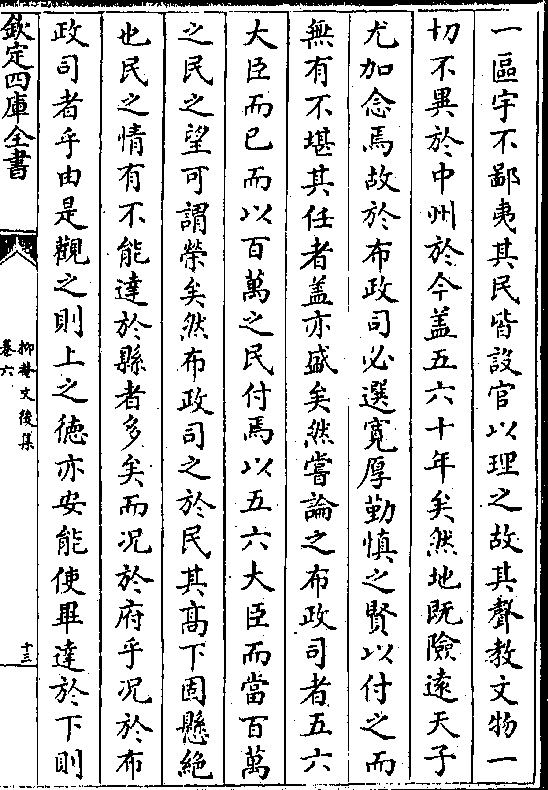 一區宇不鄙夷其民皆設官以理之故其聲教文物一
切不異於中州於今盖五六十年矣然地既險逺天子
尤加念焉故於布政司必選寛厚勤慎之賢以付之而
無有不堪其任者盖亦盛矣然嘗論之布政司者五六
大臣而已而以百萬之民付焉以五六大臣而當百萬
之民之望可謂榮矣然布政司之於民其髙下固懸絶
也民之情有不能達於縣者多矣而况於府乎况於布
政司者乎由是觀之則上之徳亦安能使畢達於下則
欽定四庫全書
抑菴文後集
卷六
十三